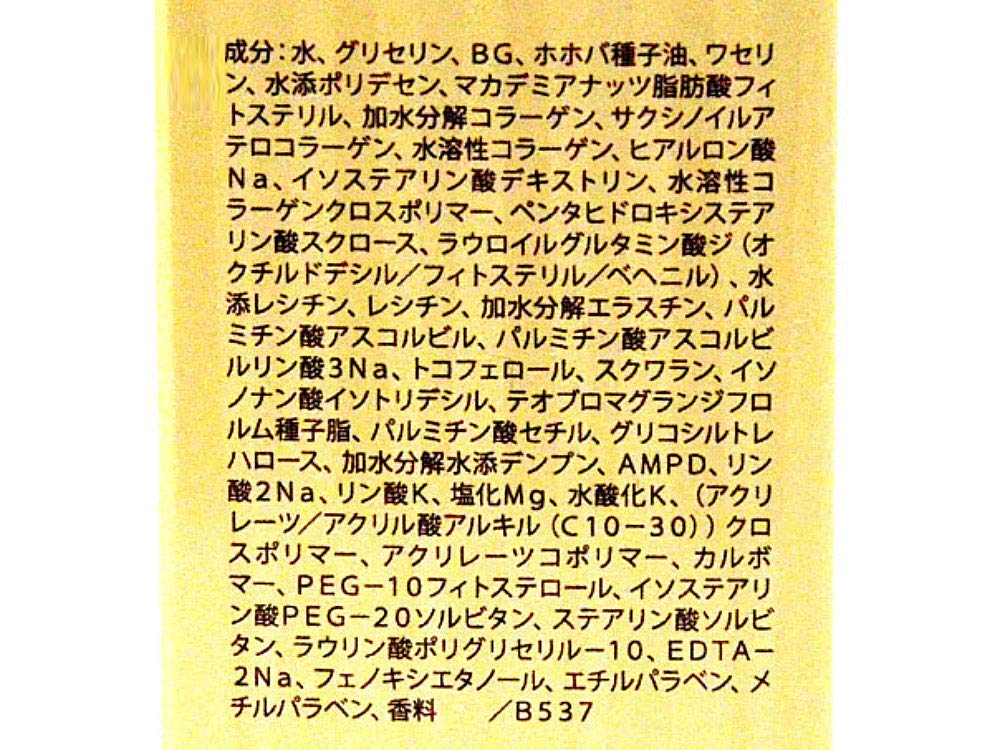 成分：水、グリセリン、BG、ホホバ種子油、ワセリ
ン、水添ポリデセン、マカデミアナッツ脂肪酸フィ
トステリル、加水分解コラーゲン、サクシノイルア
テロコラーゲン、水溶性コラーゲン、ヒアルロン酸
Na、イソステアリン酸デキストリン、水溶性コ
ラーゲンクロスポリマー、ペンタヒドロキシステア
リン酸スクロース、ラウロイルグルタミン酸ジ（オ
クチルドデシル／フィトステリル／ベヘニル）、水
添レシチン、レシチン、加水分解エラスチン、パル
ミチン酸アスコルビル、パルミチン酸アスコルビ
ルリン酸3Na、トコフェロール、スクワラン、イソ
ノナン酸イソトリデシル、テオブロマグランジフロ
ルム種子脂、パルミチン酸セチル、グリコシルトレ
ハロース、加水分解水添デンプン、AMPD、リン
酸2Na、リン酸K、塩化Mg、水酸化K、（アクリ
レーツ／アクリル酸アルキル（C10－30））クロ
スポリマー、アクリレーツコポリマー、カルボ
マー、PEG－10フィトステロール、イソステアリ
ン酸PEG－20ソルビタン、ステアリン酸ソルビ
タン、ラウリン酸ポリグリセリル－10、EDTA－
2Na、フェノキシエタノール、エチルパラベン、メ
チルパラベン、香料　　／B537